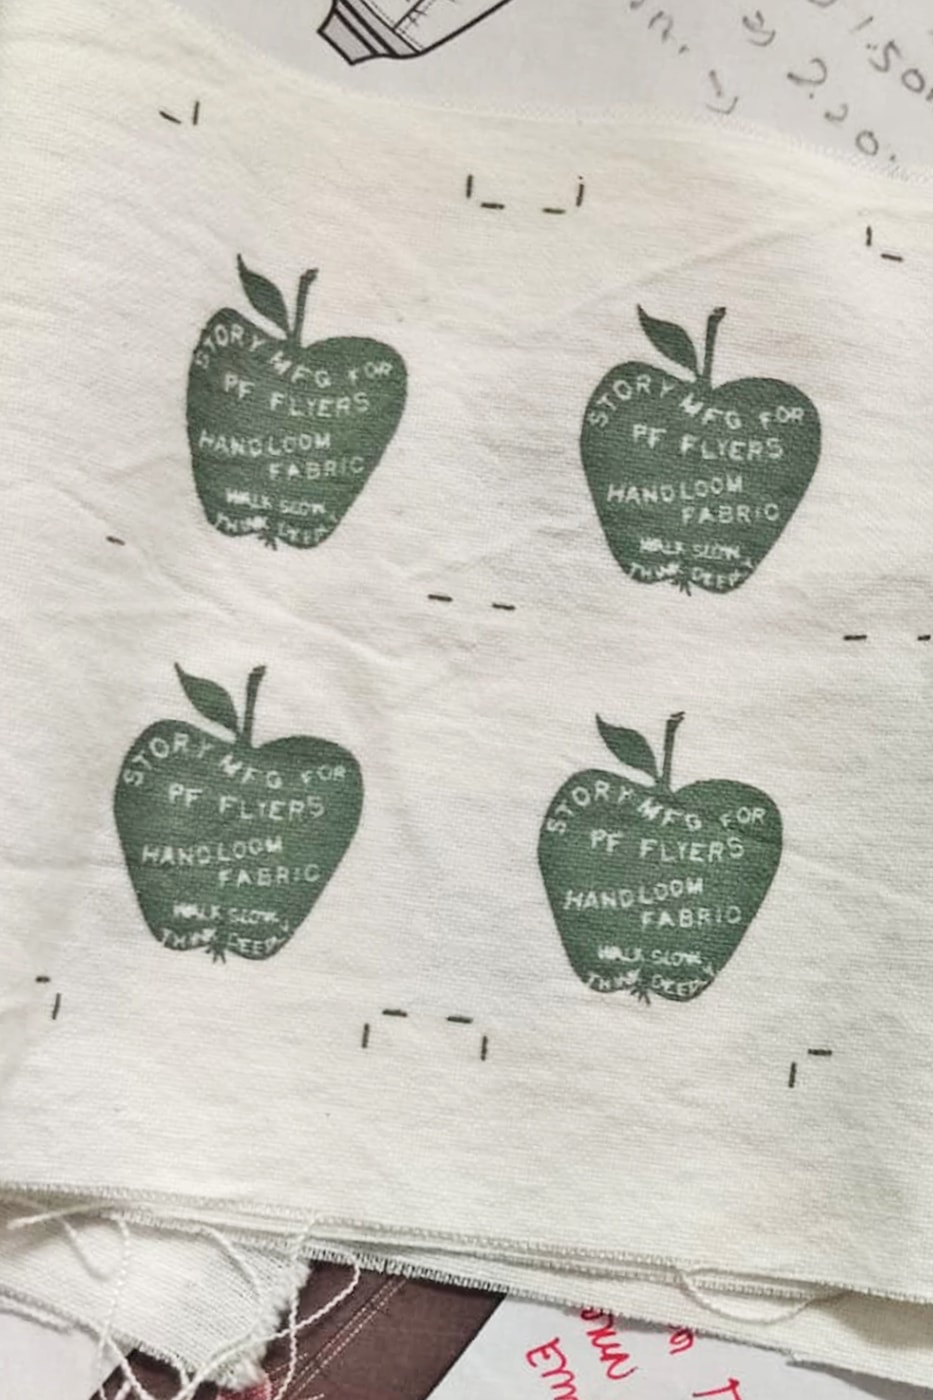 1.50
2.20
STORY MFG FOR
PF FLYERS
HANDLOOM
FABRIC
WALK SLOW,
THINK DEEPLY
STORY MFG FOR
PF FLYERS
HANDLOOM
FABRIC
WALK SLOW,
THINK DEEPLY
STORY MFG FOR
PF FLYERS
HANDLOOM
FABRIC
WALK SLOW,
THINK DEEPLY
STORY MFG FOR
PF FLYERS
HANDLOOM
FABRIC
WALK SLOW,
THINK DEEPLY